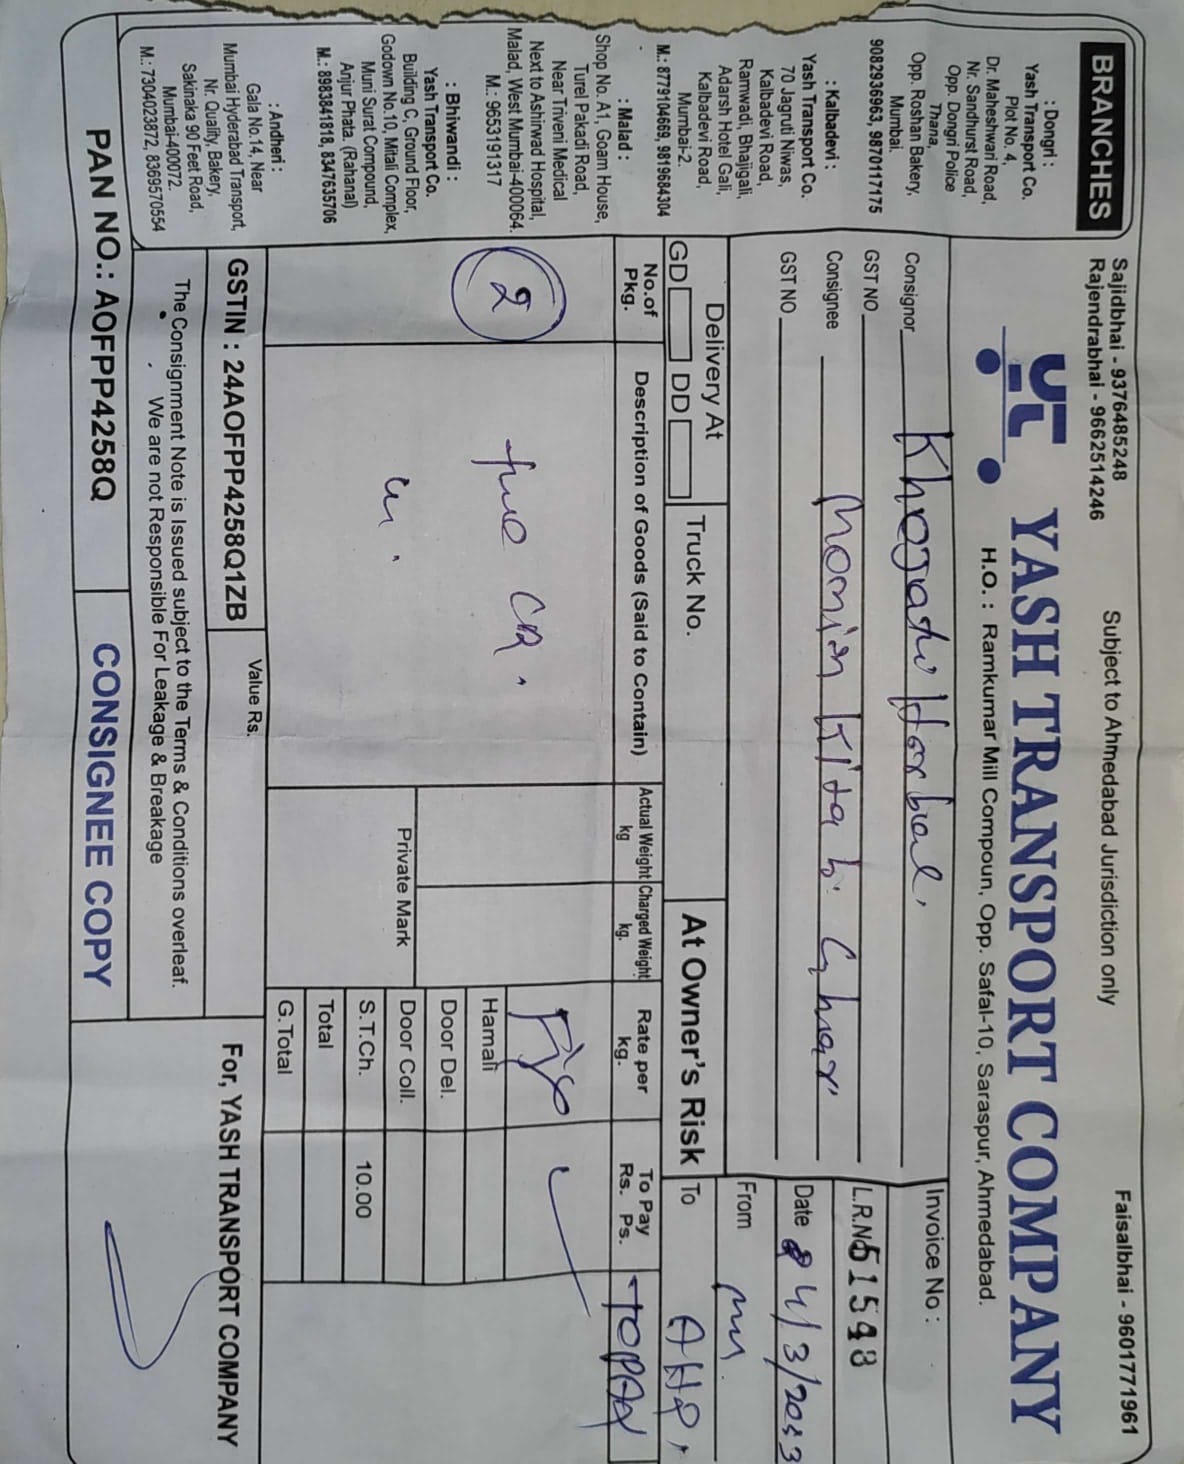 Sajidbhai - 9376485248
Rajendrabhai - 9662514246
Subject to Ahmedabad Jurisdiction only
Faisalbhai - 9601771961
YASH TRANSPORT COMPANY
H.O. : Ramkumar Mill Compoun, Opp. Safal-10, Saraspur, Ahmedabad.
BRANCHES
: Dongri :
Yash Transport Co.
Plot No. 4,
Dr. Maheshwari Road,
Nr. Sandhurst Road,
Opp. Dongri Police
Thana,
Opp. Roshan Bakery,
Mumbai.
9082936963, 9870117175
: Kalbadevi :
Yash Transport Co.
70 Jagruti Niwas,
Kalbadevi Road,
Ramwadi, Bhajigali,
Adarsh Hotel Gali,
Kalbadevi Road,
Mumbai-2.
M.: 8779104669, 9819684304
: Malad :
Shop No. A1, Goam House,
Turel Pakadi Road,
Near Triveni Medical
Next to Ashirwad Hospital,
Malad, West Mumbai-400064.
M.: 9653191317
: Bhiwandi :
Yash Transport Co.
Building C, Ground Floor,
Godown No.10, Mitali Complex,
Muni Surat Compound,
Anjur Phata. (Rahanal)
M.: 8983841818, 8347635706
: Andheri :
Gala No.14, Near
Mumbai Hyderabad Transport,
Nr. Quality, Bakery,
Sakinaka 90 Feet Road,
Mumbai-400072.
M.: 7304023872, 8369570554
Consignor
GST NO
Consignee Momin Kitab Ghar
GST NO
Invoice No :
L.R.No 51543
Date 4/3/2023
From
To AHD.
Delivery At
GD DD
Truck No.
At Owner's Risk
TOPAY
No.of Pkg.
Description of Goods (Said to Contain)
Actual Weight kg
Charged Weight kg.
Rate per kg.
To Pay Rs. Ps.
2
Fix
Hamali
Door Del.
Door Coll.
S.T.Ch. 10.00
Total
G.Total
Private Mark
GSTIN : 24AOFPP4258Q1ZB
Value Rs.
The Consignment Note is Issued subject to the Terms & Conditions overleaf.
We are not Responsible For Leakage & Breakage
For, YASH TRANSPORT COMPANY
PAN NO.: AOFPP4258Q
CONSIGNEE COPY